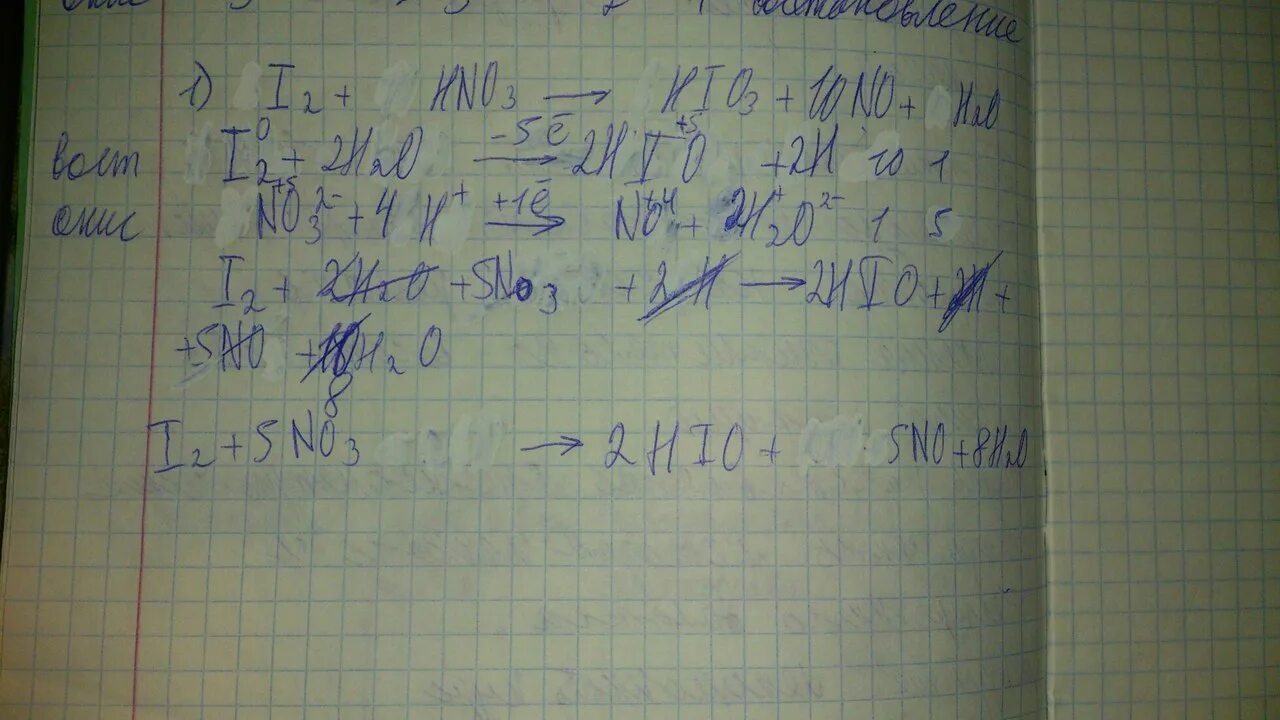 восстановление
1) I2 + HNO3 → HIO3 + 10NO + H2O
вост I2 0 + 2H2O -5ē → 2HI+5O + 2H 10 1
окис N+5O3 2- + 4 H+ +1ē → NO+4 + 2H2+O2- 1 5
I2 + 2H2O + 5NO3 + 2H → 2HIO + 2H +
+5NO + 10H2O
8
I2 + 5NO3 → 2HIO + 5NO + 8H2O